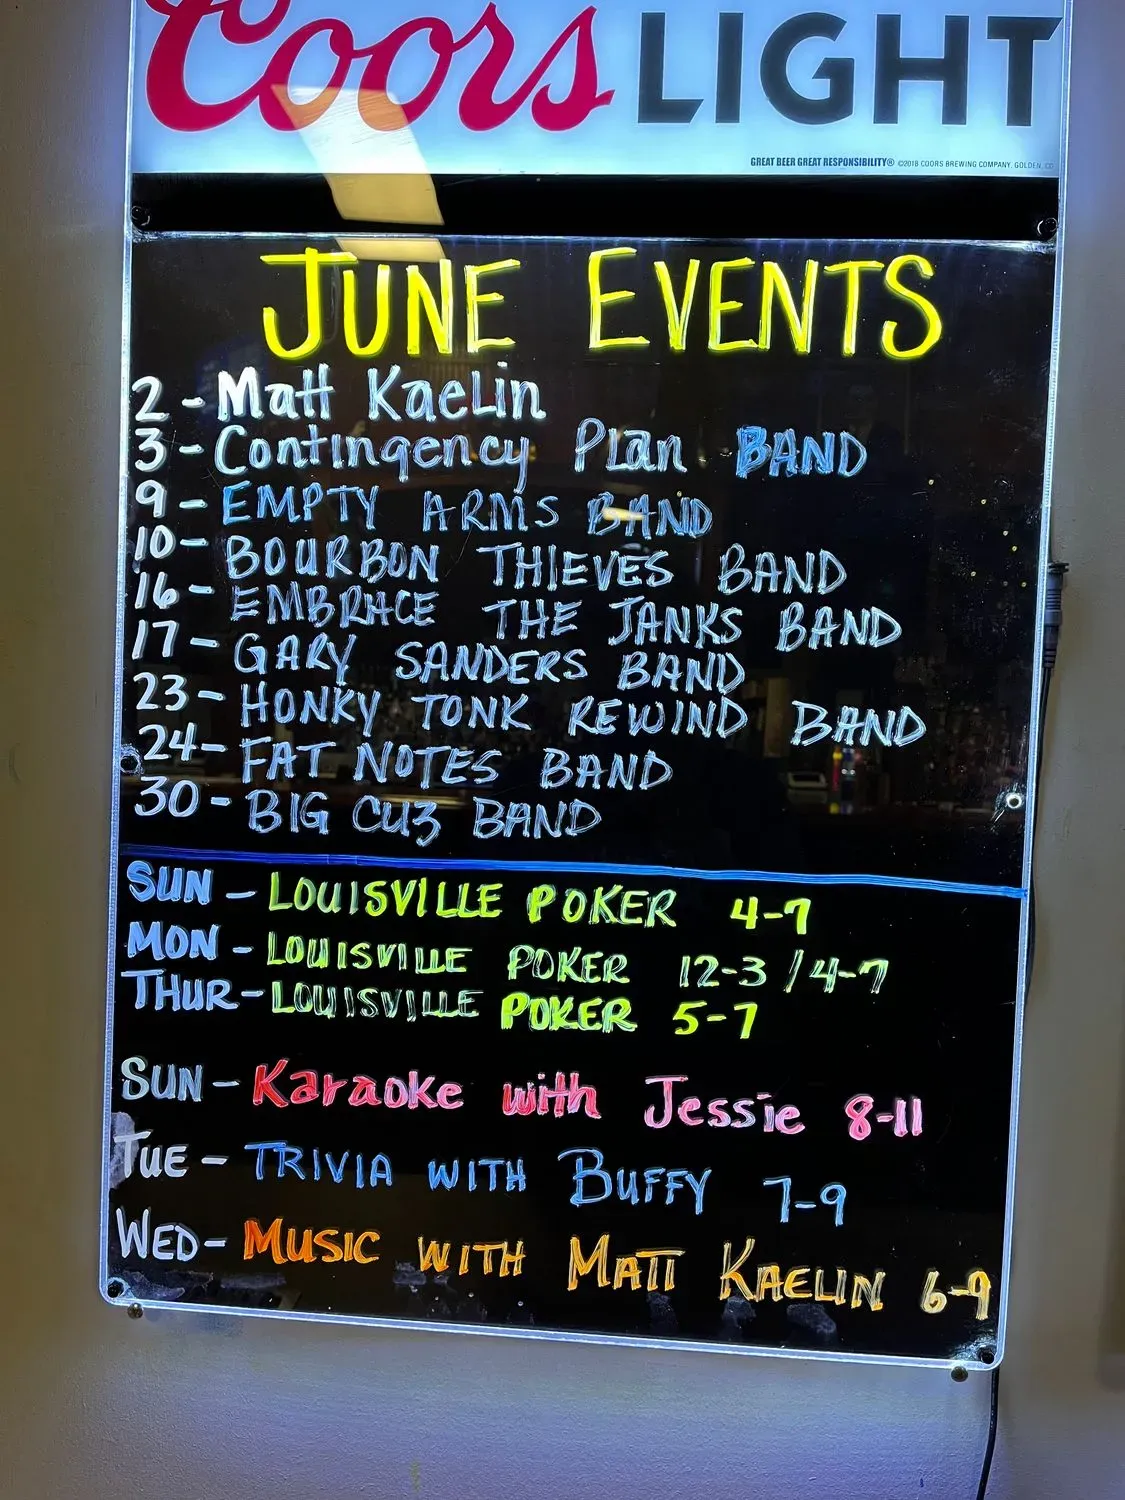 Coors LIGHT
GREAT BEER GREAT RESPONSIBILITY® ©2018 COORS BREWING COMPANY, GOLDEN, CO
JUNE EVENTS
2 - Matt Kaelin
3 - Contingency Plan BAND
9 - EMPTY ARMS BAND
10 - BOURBON THIEVES BAND
16 - EMBRACE THE JANKS BAND
17 - GARY SANDERS BAND
23 - HONKY TONK REWIND BAND
24 - FAT NOTES BAND
30 - BIG CUZ BAND
SUN - LOUISVILLE POKER 4-7
MON - LOUISVILLE POKER 12-3 / 4-7
THUR - LOUISVILLE POKER 5-7
SUN - Karaoke with Jessie 8-11
TUE - TRIVIA WITH BUFFY 7-9
WED - MUSIC WITH MATT KAELIN 6-9